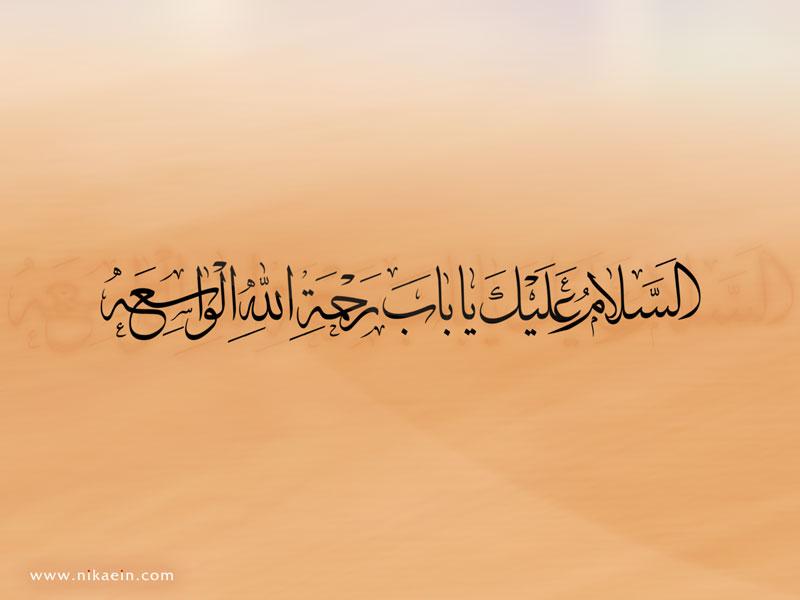 السَّلامُ عَلَيْكَ يا بابَ رَحْمَةِ اللهِ الْواسِعَهِ
www.nikaein.com